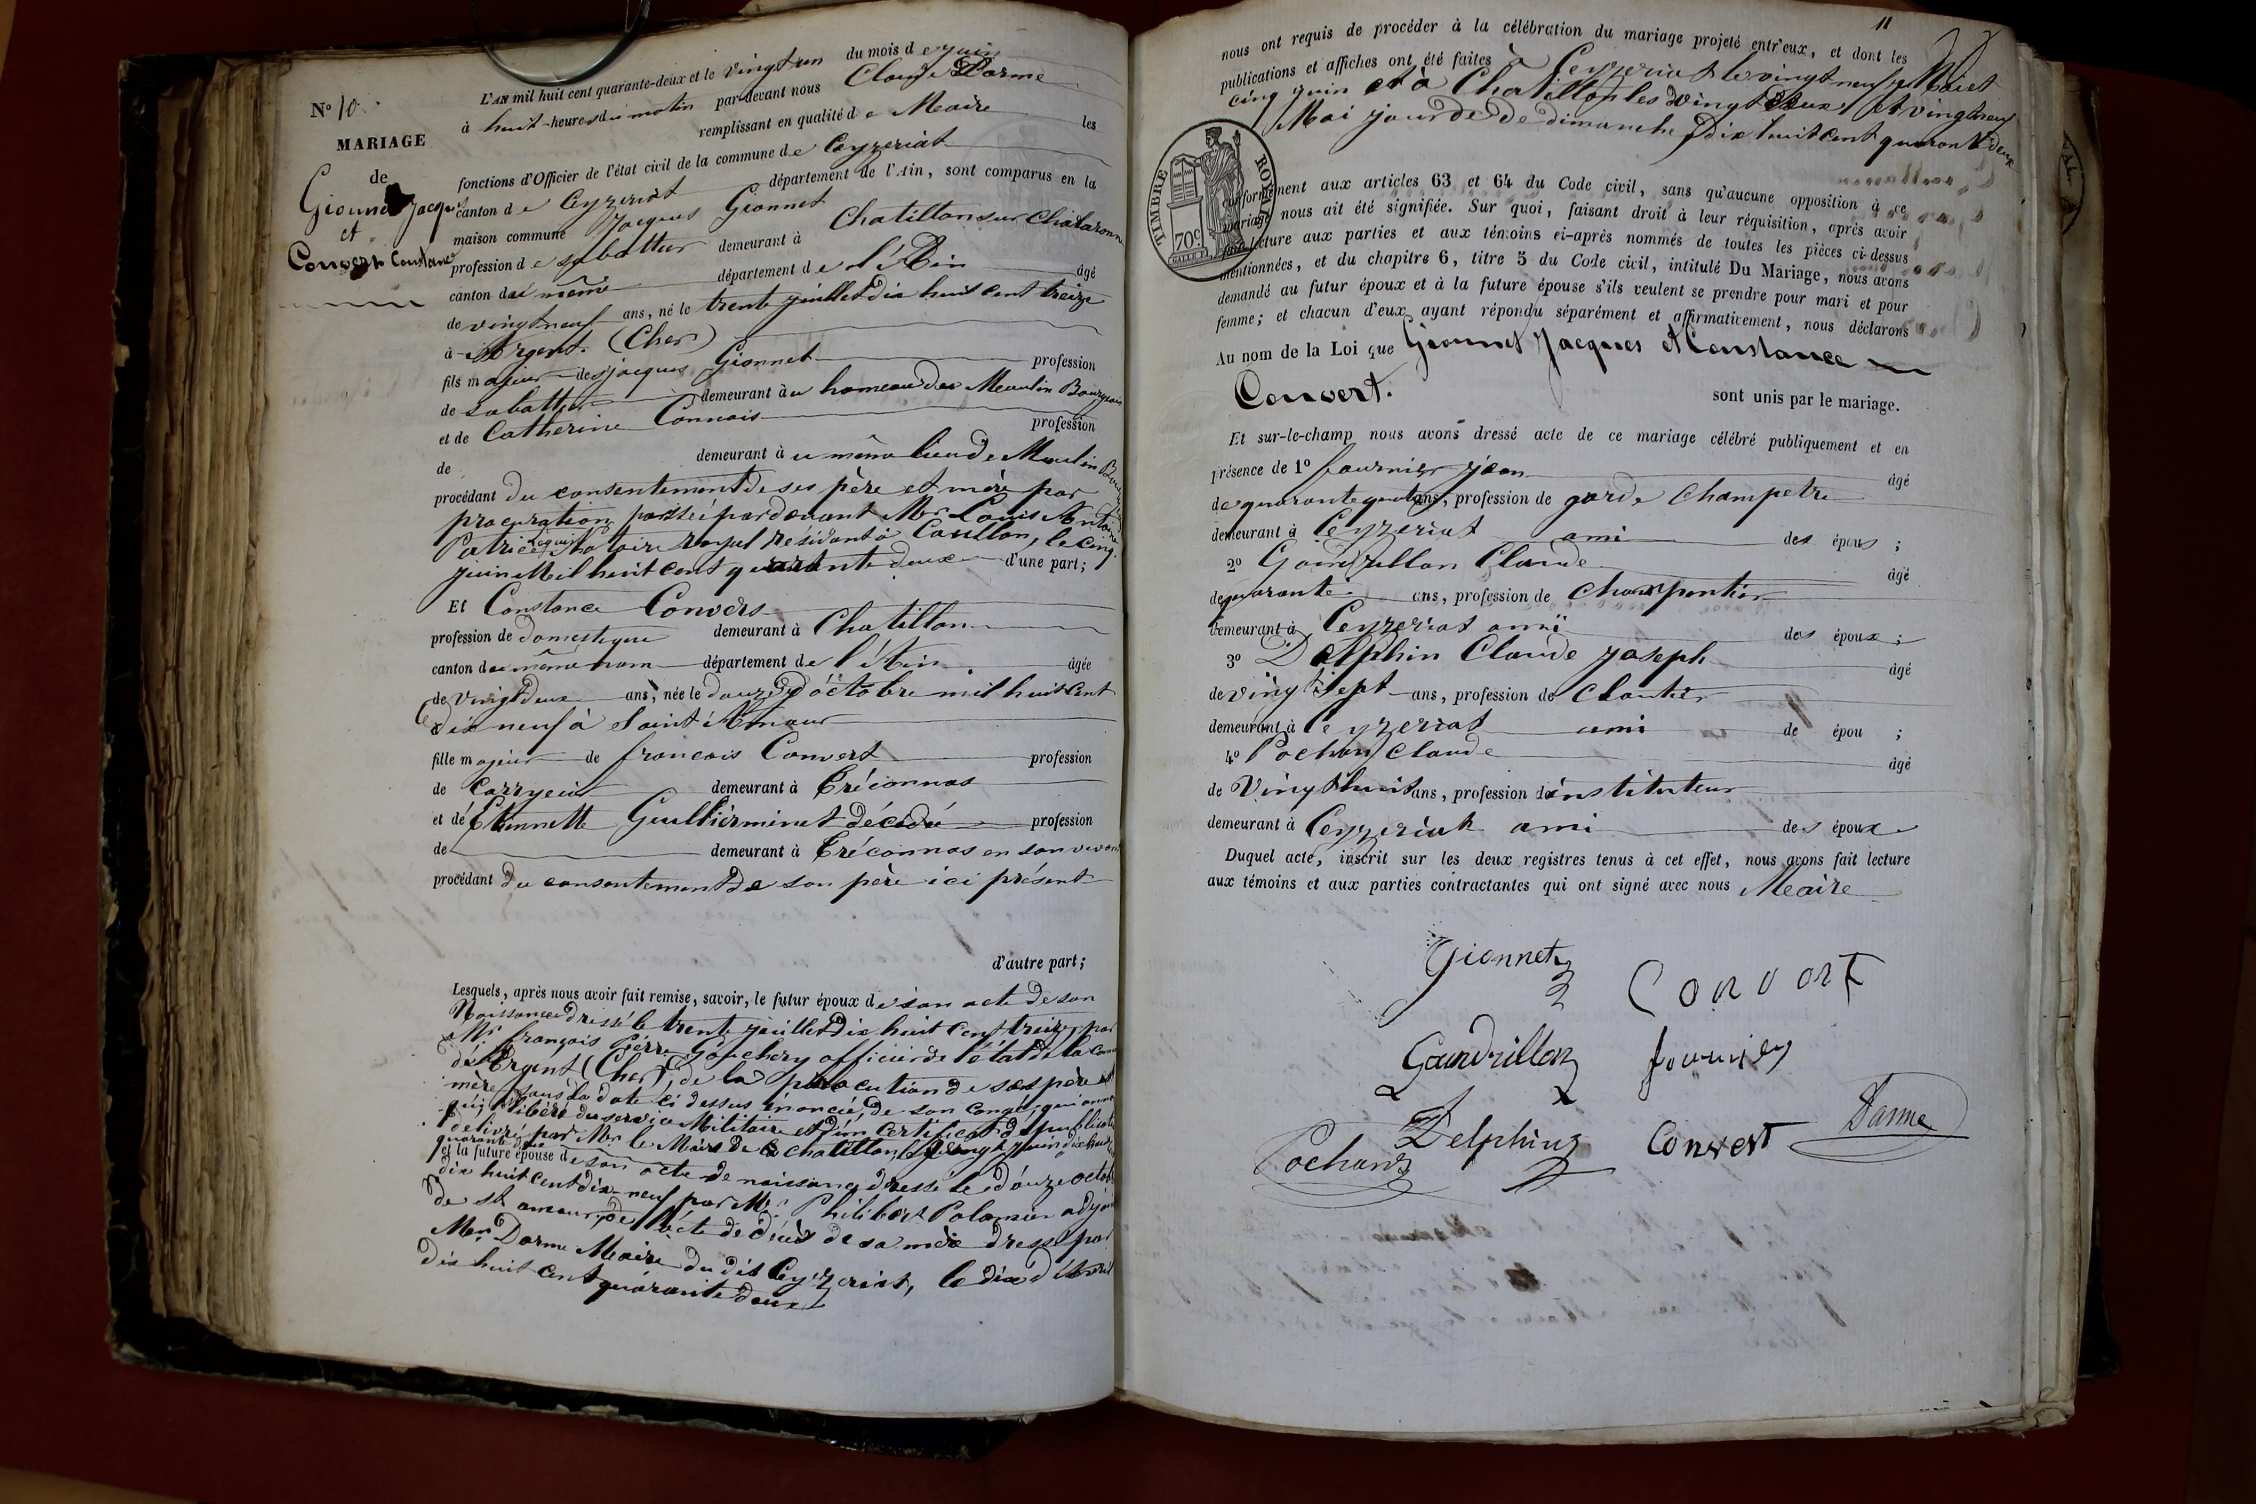 N° 10.
MARIAGE
de
Gionnet Jacques
et
Convert Constance
L'AN mil huit cent quarante-deux et le vingt un du mois de juin
à huit heures du matin par-devant nous Claude Darme
remplissant en qualité de Maire les
fonctions d'Officier de l'état civil de la commune de Ceyzeriat
canton de Ceyzeriat département de l'Ain, sont comparus en la
maison commune Jacques Gionnet
profession de sabottier demeurant à Chatillon sur Chalaronne
canton du même département de l'Ain âgé
de vingt neuf ans, né le trente juillet dix huit cent treize
à Argent (Cher)
fils majeur de Jacques Gionnet profession
de sabottier demeurant au hameau des Meulin Bourgeois
et de Catherine Connais profession
de demeurant à u même lieu de Moulin
procédant du consentement de ses père et mère par
procuration passée pardevant Mr Louis Antoine
Patrice Notaire Royal résidant à le cinq
juin Mil huit cent quarante deux d'une part;
Et Constance Convers
profession de domestique demeurant à Chatillon
canton du même nom département de l'Ain âgée
de vingt deux ans, née le douze d'octobre mil huit cent
dix neuf à Saint Amour
fille majeur de francois Convert profession
de carryeur demeurant à Tréconnas
et de Etiennette Guillierminet décédé profession
de demeurant à Tréconnas en son vivant
procédant du consentement de son père ici présent
d'autre part;
Lesquels, après nous avoir fait remise, savoir, le futur époux de son acte de son
Naissance dressé le trente juillet dix huit cent treize par
Mr françois Pierre Souchery officier de l'état de la
de Argent (Cher) de la procuration de ses père et
mère sous la date ci dessus énoncée, de son congé,
libéré du service Militaire et d'un certificat de publication
délivré par Mr le Maire de Chatillon le vingt juin dix huit
quarante deux
et la future épouse de son acte de naissance dressé le douze octobre
dix huit cent dix neuf par Mr Philibert Palamier adjoint
de St amour, de l'acte de décès de sa mère dressé par
Mr Darme Maire du dit Ceyzeriat, le dix d'Avril
dix huit cent quarante deux
11
nous ont requis de procéder à la célébration du mariage projeté entr'eux, et dont les
publications et affiches ont été faites à Ceyzeriat le vingt neuf Mai et
cinq juin et à Chatillon les vingt deux et vingt neuf
Mai jour de dimanche dix huit cent quarante deux
TIMBRE ROYAL
70 c.
conformément aux articles 63 et 64 du Code civil, sans qu'aucune opposition à ce
mariage nous ait été signifiée. Sur quoi, faisant droit à leur réquisition, après avoir
fait lecture aux parties et aux témoins ci-après nommés de toutes les pièces ci-dessus
mentionnées, et du chapitre 6, titre 5 du Code civil, intitulé Du Mariage, nous avons
demandé au futur époux et à la future épouse s'ils veulent se prendre pour mari et pour
femme; et chacun d'eux ayant répondu séparément et affirmativement, nous déclarons
Au nom de la Loi que Gionnet Jacques et Constance
Convert. sont unis par le mariage.
Et sur-le-champ nous avons dressé acte de ce mariage célébré publiquement et en
présence de 1° fournier jean âgé
de quarante ans, profession de garde champetre
demeurant à Ceyzeriat ami des épous ;
2° Gandrillon Claude âgé
de quarante ans, profession de charpentier
demeurant à Ceyzeriat ami des époux ;
3° Delphin Claude joseph âgé
de vingt sept ans, profession de cloutier
demeurant à Ceyzeriat ami de épou ;
4° Pochon Claude âgé
de Vingt huit ans, profession de instituteur
demeurant à Ceyzeriat ami des époux
Duquel acte, inscrit sur les deux registres tenus à cet effet, nous avons fait lecture
aux témoins et aux parties contractantes qui ont signé avec nous Maire
Gionnet
Convert
Gandrillon fournier
Darme
Delphin Convert
Pochon